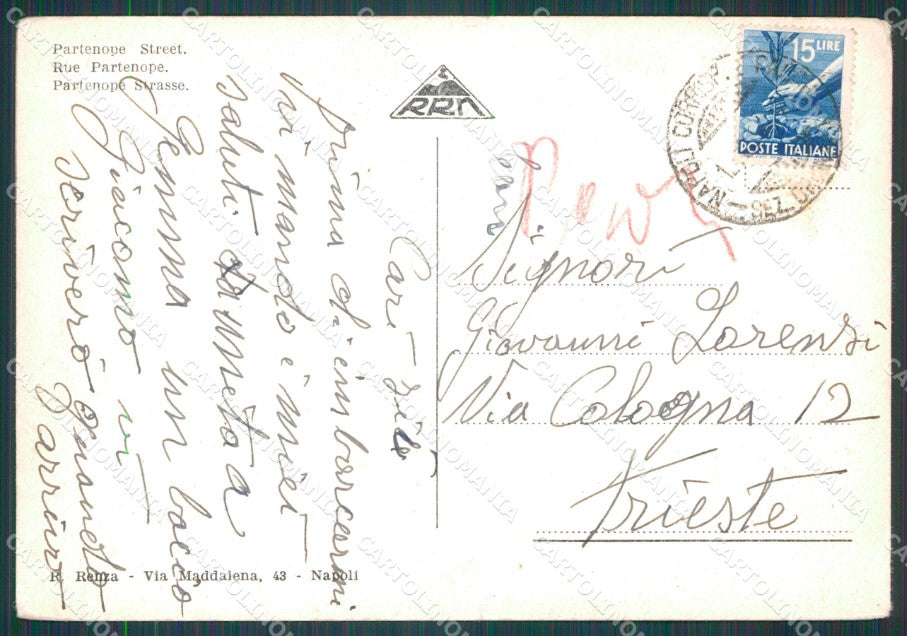 Partenope Street.
Rue Partenope.
Partenope Strasse.
RRN
15 LIRE
POSTE ITALIANE
NAPOLI
Cari zii
Prima di imbarcarmi
Vi mando i miei
saluti
Gemma un bacio
Giacomo vi
scriverò quando
Signori
Giovanni Lorenzi
Via Cologna 12
Trieste
R. Renza - Via Maddalena, 43 - Napoli
CARTOLINOMANIA